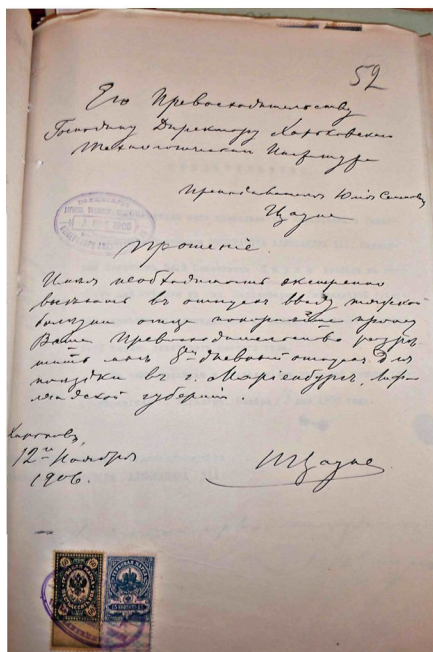 52
Его Превосходительству
Господину Директору Харьковского
Технологического Института
Преподавателя
Цауне
Прошеніе.
Имея необходимость экстренно
выехать въ отпускъ ввиду тяжкой
болезни отца покорнейше прошу
Ваше Превосходительство разре
шить мне 8ми дневный отпускъ для
поездки въ г. Маріенбургъ, Лиф
ляндской губерніи
Харьковъ,
12го Ноября
1906.
Цауне